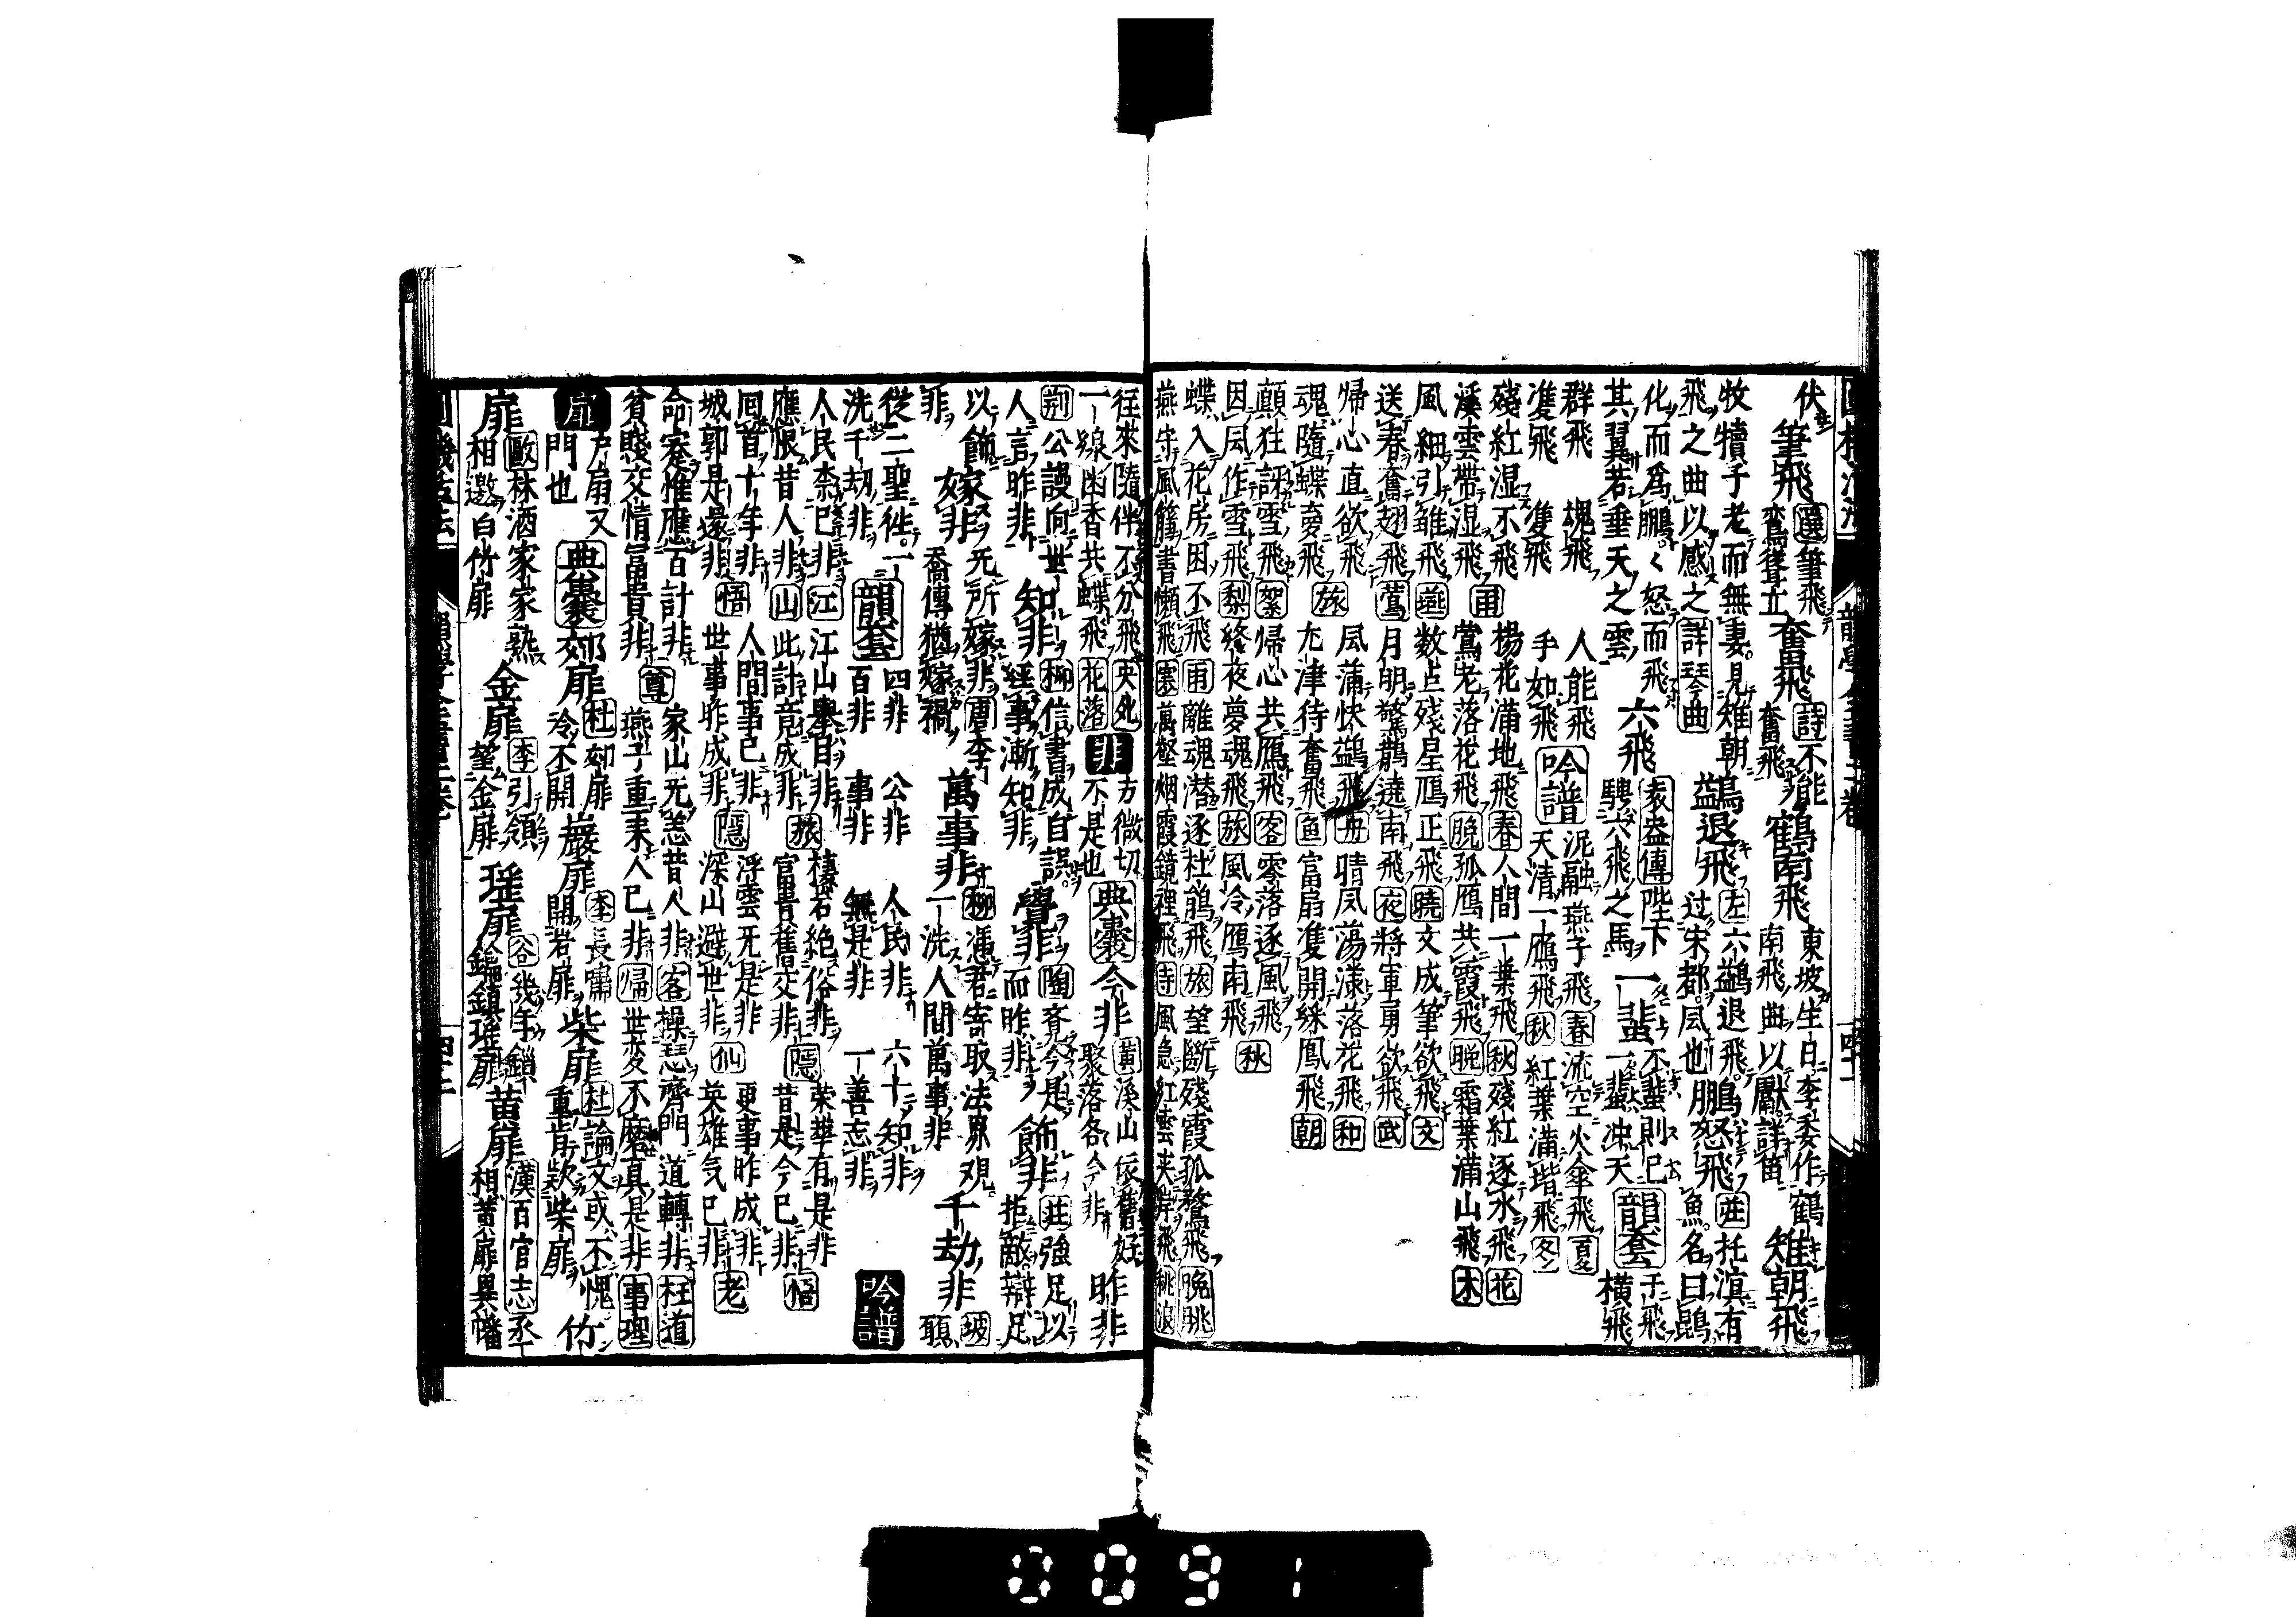 伏 筆飛 選筆飛鸞聳立 奮飛 詩不能奮飛 鶴南飛 東坡生日李委作鶴南飛曲以獻詳笛 雉朝飛
牧犢子老而無妻見雉朝飛之曲以感之詳琴曲 鷁退飛 左六鷁退飛過宋都風也 鵬怒飛 莊托溟有魚名曰鵾
化而為鵬々怒而飛其翼若垂天之雲 六飛 袁盎傳陛下騁六飛之馬 一蜚 不蜚則已一蜚冲天 韻套 于飛 橫飛
群飛 魂飛 人能飛
隻飛 雙飛 手如飛
吟譜 泥融燕子飛 春 流空火傘飛 夏
天清一雁飛 秋 紅葉滿堦飛 冬
殘紅湿不飛 雨 楊花滿地飛 春 人間一葉飛 秋 殘紅逐水飛 花
溪雲帶湿飛 鶯老落花飛 晚 孤鴈共霞飛 晚 霜葉滿山飛 木
風細引雛飛 燕 数点残星鴈正飛 曉 文成筆欲飛 文
送春奮翅飛 鶯 月明驚鵲遶南飛 夜 將軍勇欲飛 武
帰心直欲飛 旅 風蒲快鷁飛 舟 晴風蕩漾落花飛 和
魂隨蝶夢飛 尢津待奮飛 魚 富扇隻開綵鳳飛 朝
顛狂訝雪飛 絮 帰心共鴈飛 客 零落逐風飛 秋
因風作雪飛 梨 終夜夢魂飛 旅 風冷鴈南飛
蝶入花房困不飛 雨 離魂潜逐杜鵑飛 旅 望斷殘霞孤鶩飛 晚眺
燕守風簷書懶飛 寒 萬壑烟霞鏡裡飛 寺 風急紅雲夾岸飛 桃浪
往來隨伴不分飛
一線幽香共蝶飛 花落 非 方微切不是也 典囊 今非 黃溪山依舊好聚落各今非 昨非
荊公謾向世人言昨非 知非 柳信書成自誤經事漸知非 覺非 陶覺今是而昨非 飾非 莊強足以拒敵辯足
以飾非 嫁非 无所嫁非 唐李喬傳猶嫁禍 萬事非 柳憑君寄取法界观一洗人間萬事非 千劫非 坡願
從二聖往一洗千劫非 韻套 四非 公非 人民非 六十知非
百非 事非 無是非 一善忘非 吟譜
人民柰已非 江 江山舉目非 旅 棲岩絕俗非 隱 荣華有是非
應恨昔人非 山 此計竟成非 富貴舊交非 昔是今已非 悟
回首十年非 悟 人間事已非 隱 浮雲无是非 仙 更事昨成非 老
城郭是還非 世事昨成非 深山避世非 英雄气已非
命蹇惟應百計非 尊 家山无恙昔人非 客 操瑟齊門道轉非 枉道
貧賤交情富貴非 燕子重来人已非 帰 世変不磨真是非 事理
扉 户扇又門也 典囊 郊扉 杜郊扉冷不開 巖扉 李長嘯開岩扉 柴扉 杜論文或不愧重肯欵柴扉 竹
扉 歐林酒家家熟相邀白竹扉 金扉 李引領望金扉 瑶扉 谷幾年鎖鑰鎮瑶扉 黄扉 漢百官志丞相黄扉異幡
吟譜
0091